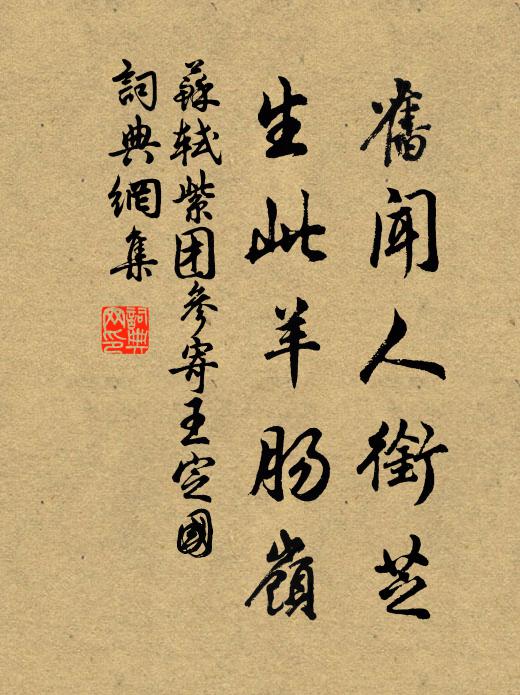 舊聞人銜芝
生此羊肠嶺
蘇轼紫团參寄王定國
詞典網集
詞典
网印